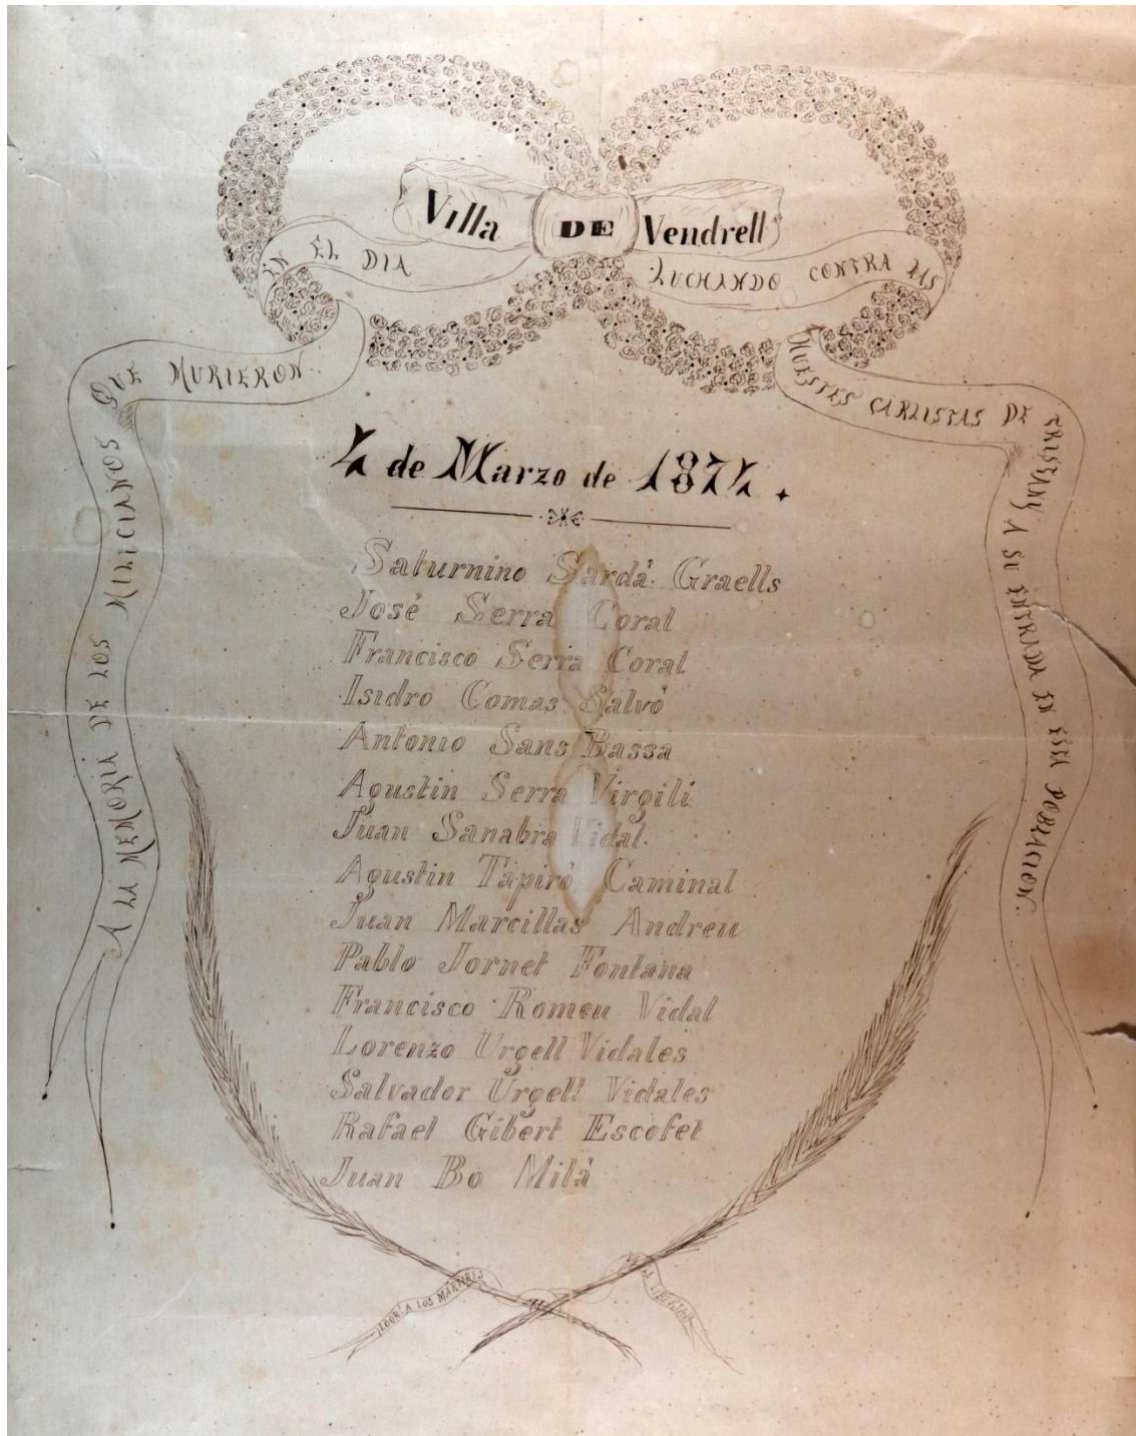 Villa DE Vendrell
A LA MEMORIA DE LOS MILICIANOS QUE MURIERON
EN EL DIA
LUCHANDO CONTRA LAS
HUESTES CARLISTAS DE TRISTANY A SU ENTRADA EN ESTA POBLACION.
4 de Marzo de 1874.
Saturnino Sardá Graells
José Serra Coral
Francisco Serra Coral
Isidro Comas Salvó
Antonio Sans Bassa
Agustin Serra Virgili
Juan Sanabra Vidal.
Agustin Tapiró Caminal
Juan Marcillas Andreu
Pablo Jornet Fontana
Francisco Romeu Vidal
Lorenzo Urgell Vidales
Salvador Urgell Vidales
Rafael Gibert Escofet
Juan Bo Milá
¡LOOR! A LOS MÁRTIRES
LIBERTAD